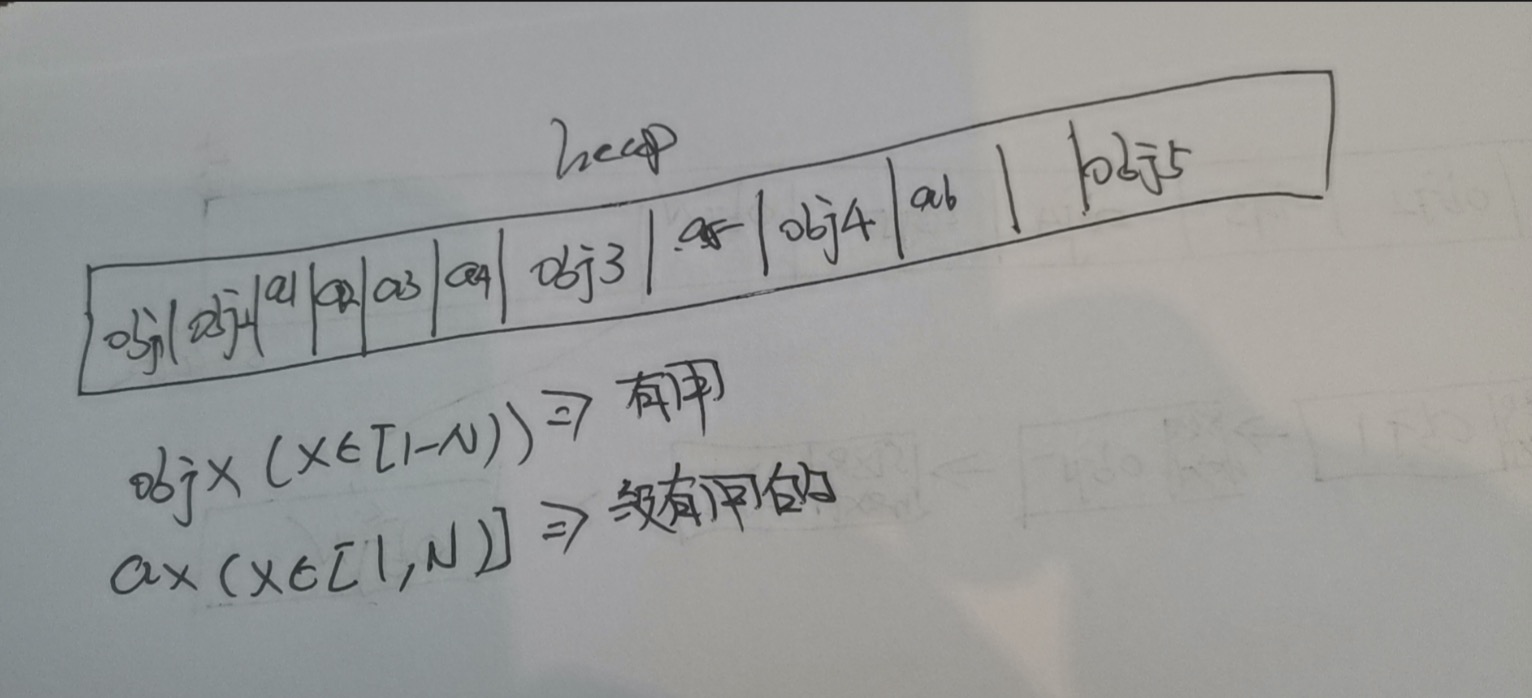 heap
obj1 | obj2 | a1 | a2 | a3 | a4 | obj3 | a5 | obj4 | a6 | | obj5
objx (x∈[1-N)) => 有用
ax (x∈[1,N)] => 没有用的